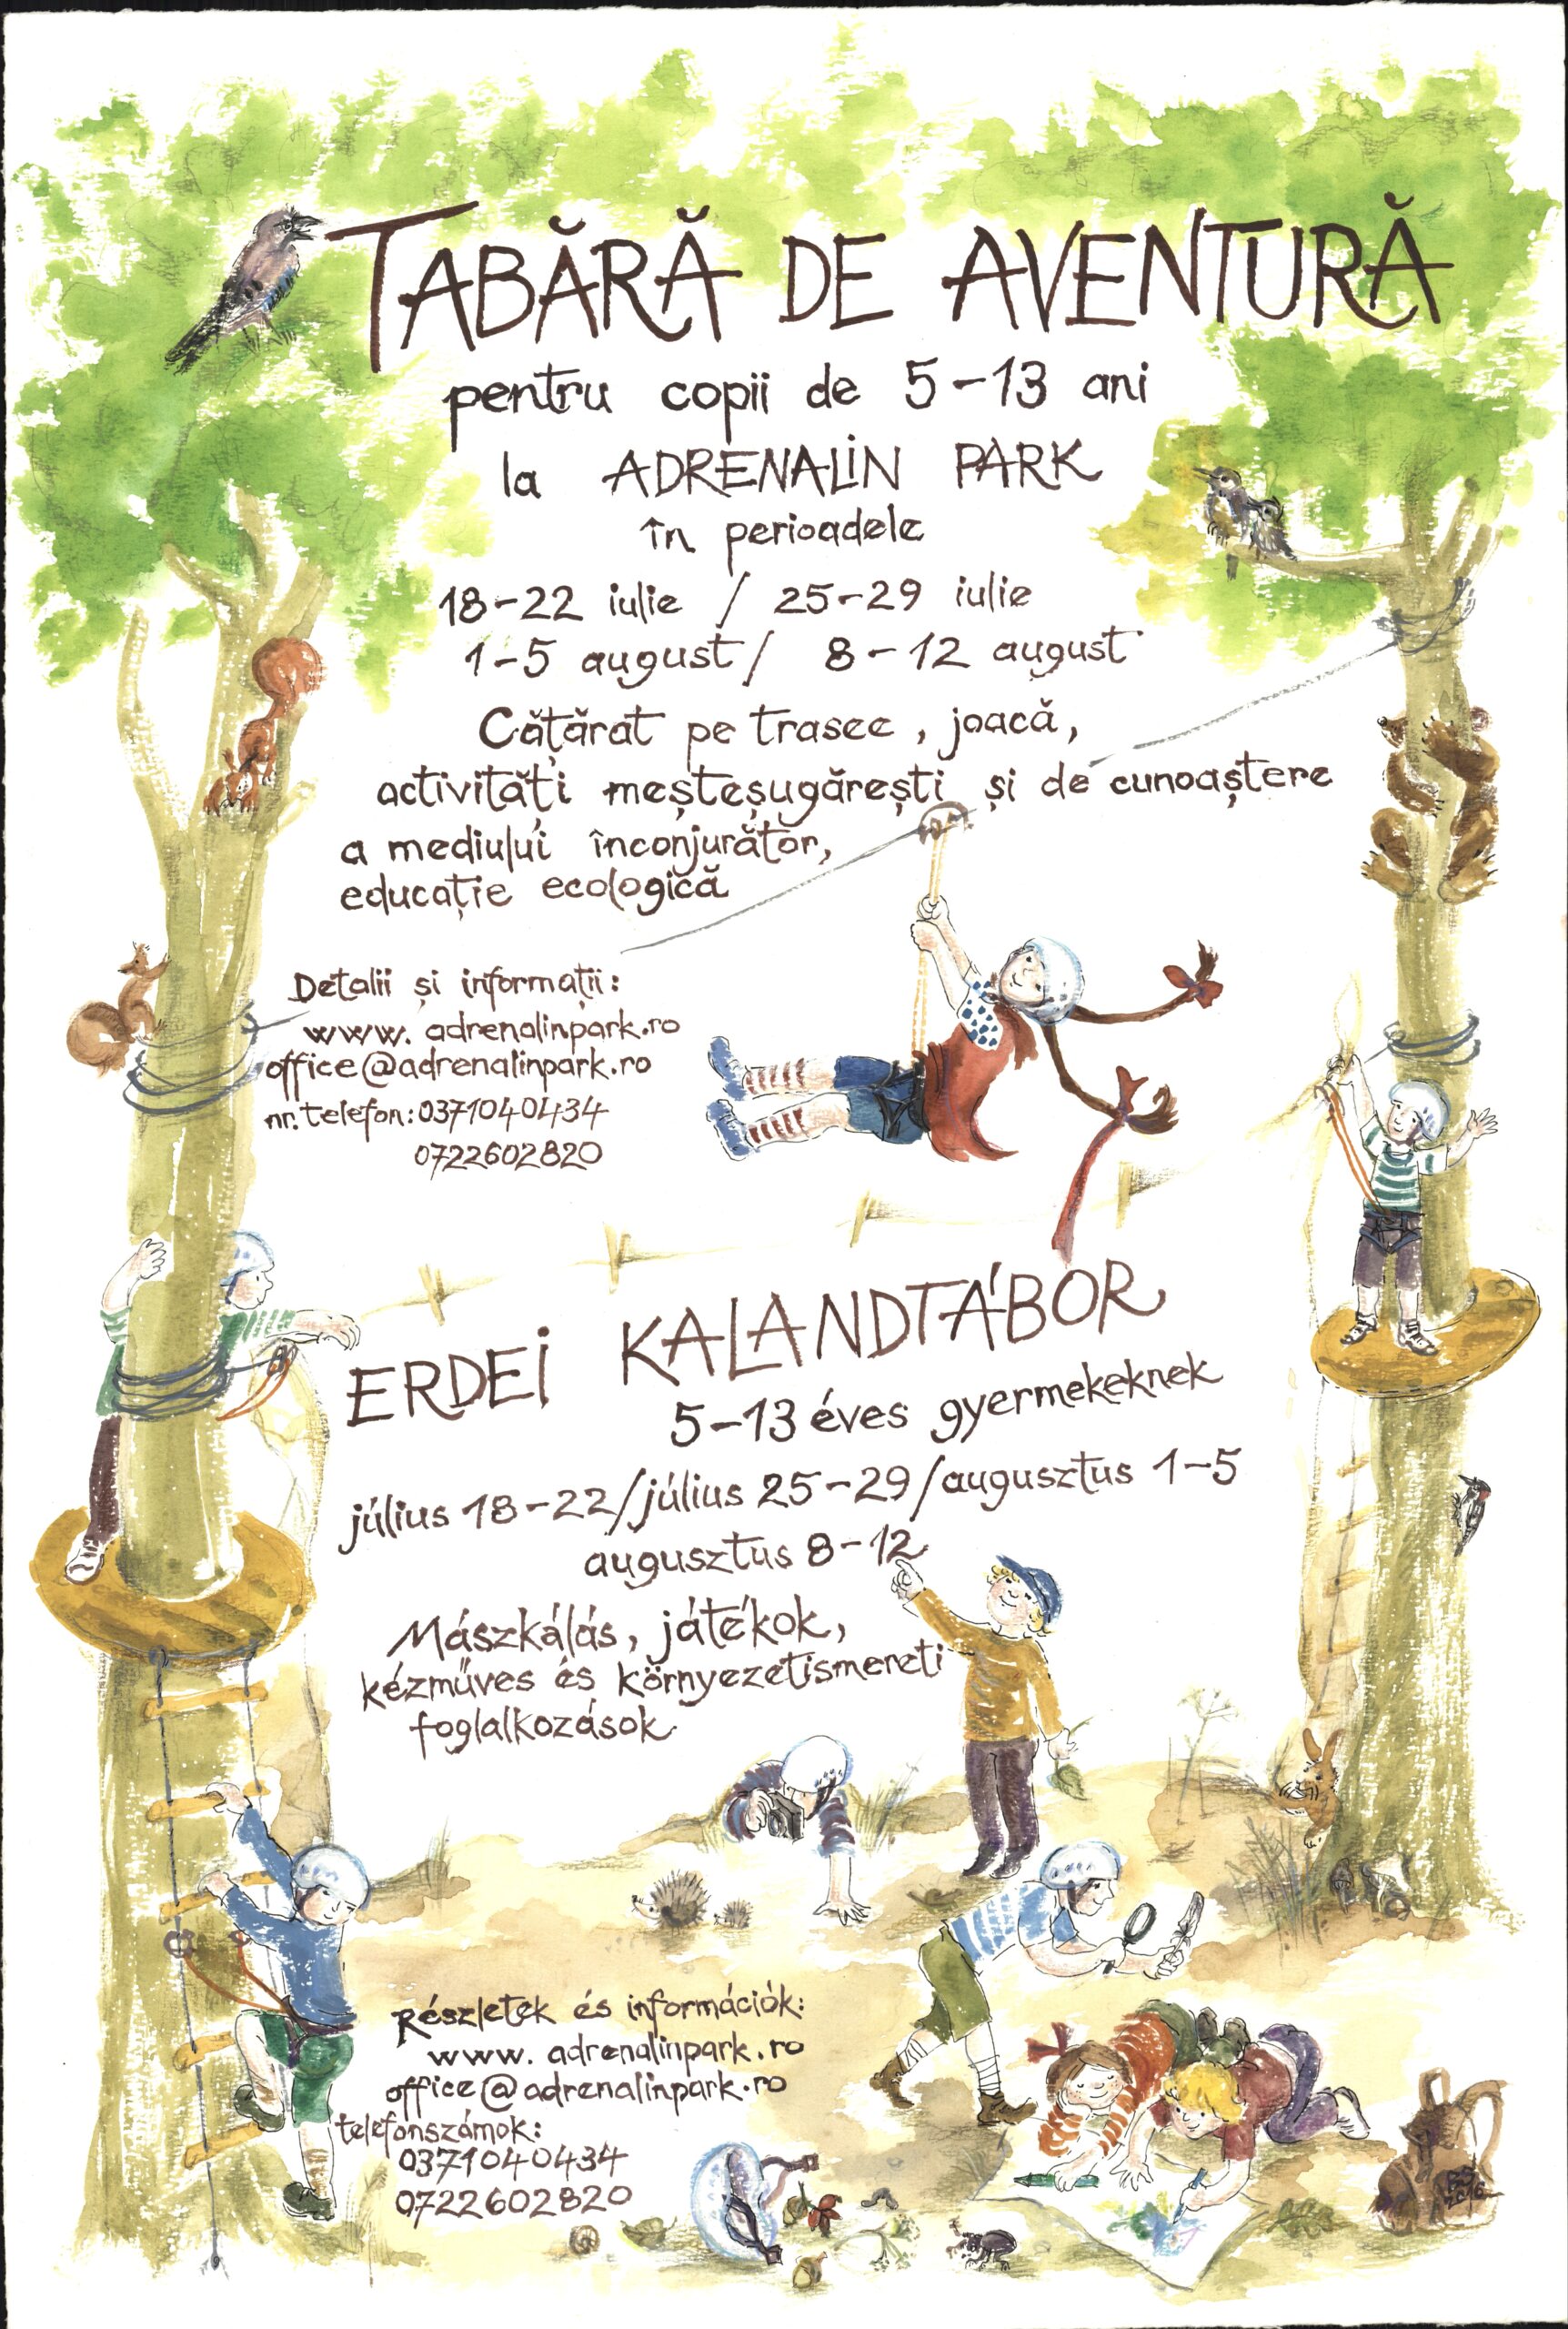 TABĂRĂ DE AVENTURĂ
pentru copii de 5-13 ani
la ADRENALIN PARK
în perioadele
18-22 iulie / 25-29 iulie
1-5 august / 8-12 august
Cățărat pe trasee, joacă,
activități meșteșugărești și de cunoaștere
a mediului înconjurător,
educație ecologică
Detalii și informații:
www.adrenalinpark.ro
office@adrenalinpark.ro
nr. telefon: 0371040434
0722602820
ERDEI KALANDTÁBOR
5-13 éves gyermekeknek
július 18-22/július 25-29/augusztus 1-5
augusztus 8-12
Mászkálás, játékok,
kézműves és környezetismereti
foglalkozások
Részletek és információk:
www.adrenalinpark.ro
office@adrenalinpark.ro
telefonszámok:
0371040434
0722602820
BS
2016